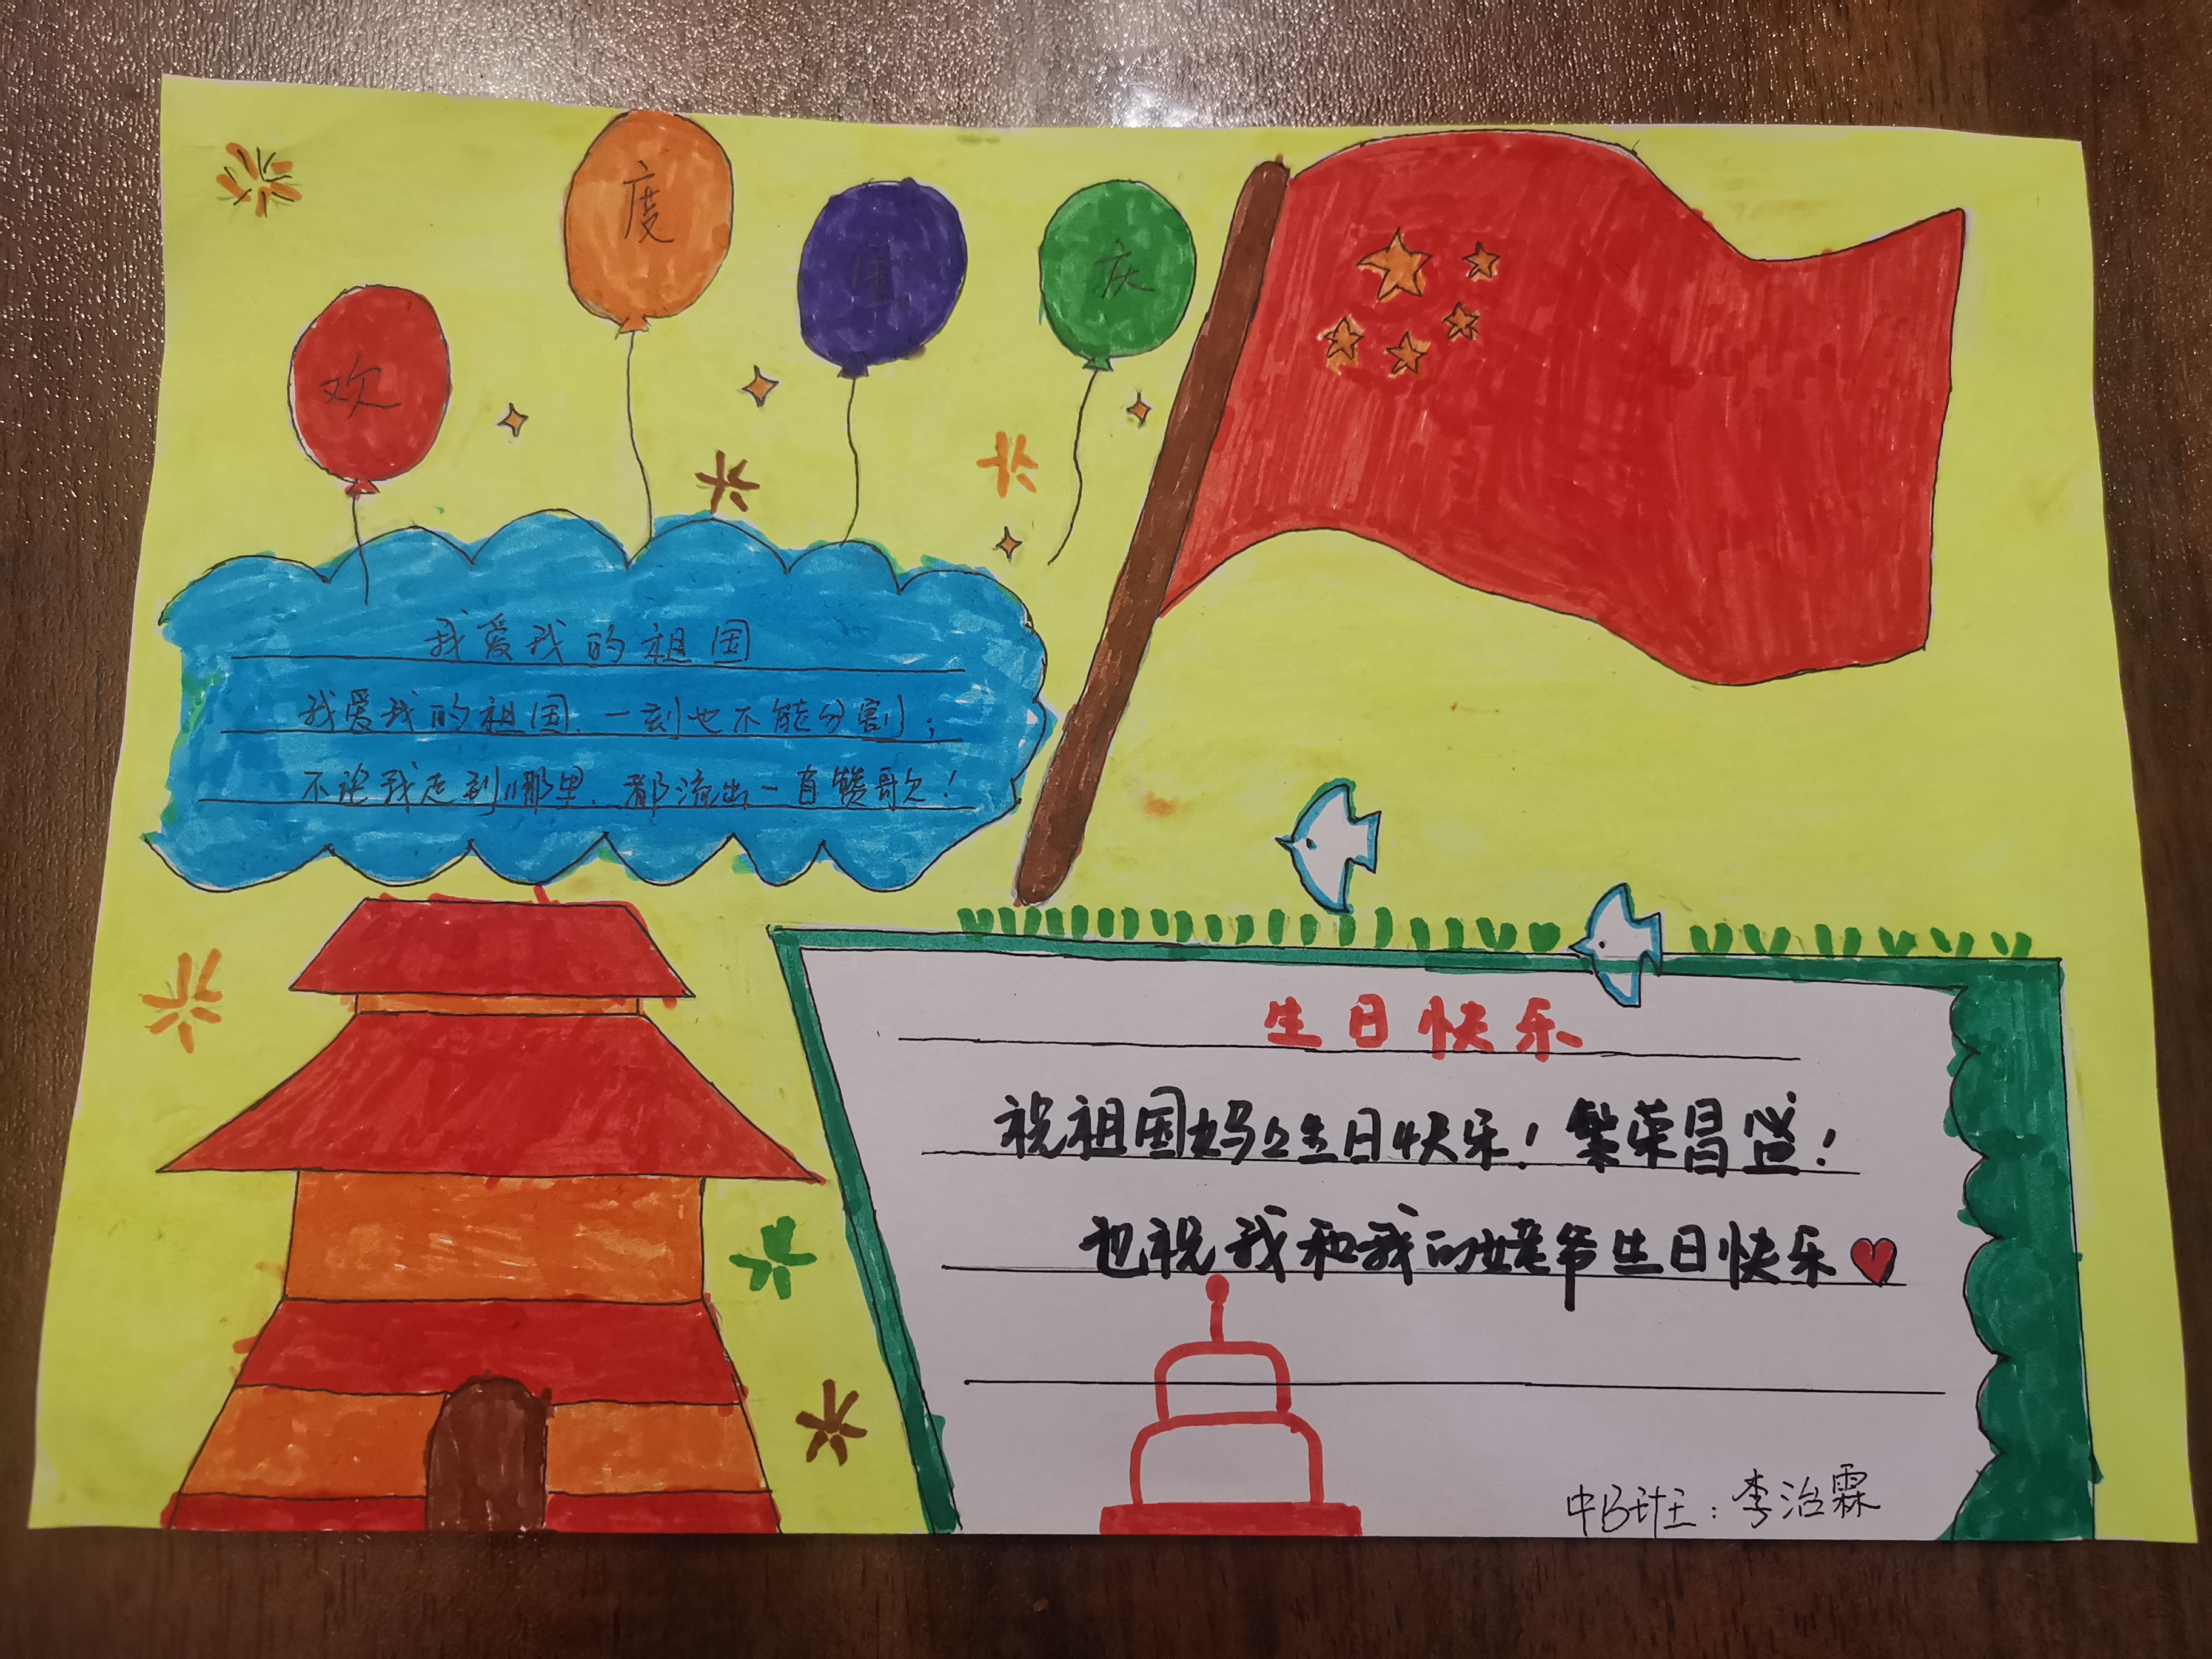 欢度国庆
我爱我的祖国
我爱我的祖国.一刻也不能分割;
不论我走到哪里.都流出一首赞歌!
生日快乐
祝祖国妈妈生日快乐!繁荣昌盛!
也祝我和我的姥爷生日快乐
中B班:李治霖